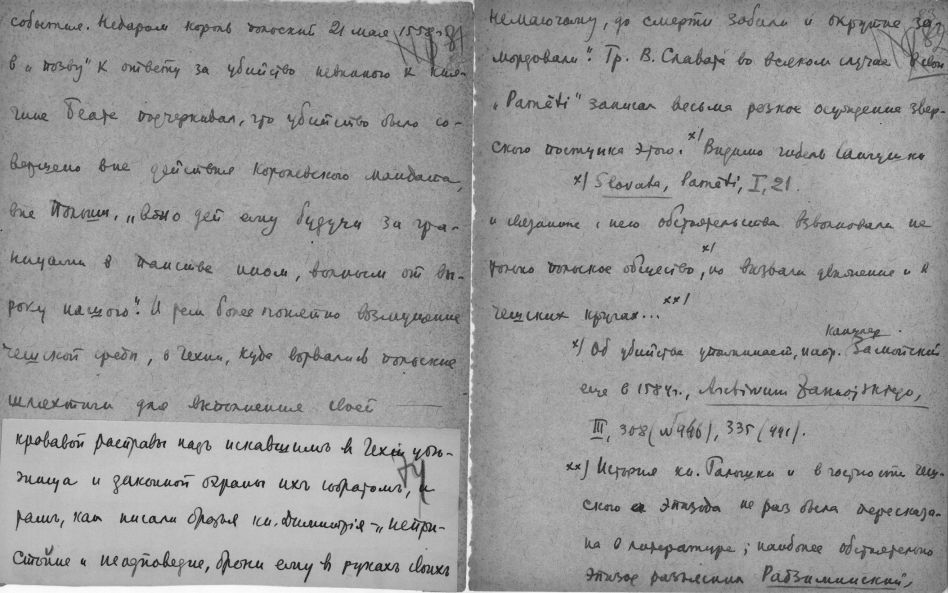 события. Недаром король польский 21 мая 1558 г.
в „позву" к ответу за убийство невинного к кня-
гине Беате подчеркивал, что убийство было со-
вершено вне действия Королевского мандата,
вне Польши, „Вжо дей ему будучи за гра-
ницами в панстве ином, вольным от вы-
року нашого". И тем более понятно возмущение
чешской среды, в Чехии, куда ворвались польские
шляхтичи для выполнения своей
кровавой расправы надъ искавшимъ в Чехiи убѣ-
жища и законной охраны ихъ собратомъ, и
тамъ, как писали братья кн. Димитрiя – „непри-
стойне и неодповедне, брони ему в руках своих
немаючому, до смерти забили и окрутне за-
мордовали". Гр. В. Славата во всяком случае в своих
„Paměti" записал весьма резкое осуждение звер-
ского поступка этого. x) Видимо гибель Сангушки
x) Slavata, Paměti, I, 21.
и связанные с нею обстоятельства взволновали не
только польское общество, x) но вызвали движение и в
чешских кругах... xx)
x) Об убийстве упоминает, напр. канцлер Замойский
еще в 1584 г., Archiwum Zamojskiego,
III, 308 (№ 946), 335 (991).
xx) История кн. Гальшки и в частности чеш-
ского эпизода не раз была пересказа-
на в литературе; наиболее обстоятельно
эпизод разъяснил Радзиминский,